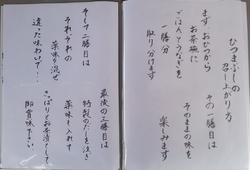 ひつまぶしの
召し上がり方
まず おひつから
お茶碗に
ごはんとうなぎを
一膳分
取り分けます
その一膳目は
そのままの味を
楽しみます
そして二膳目は
それぞれの
薬味を混ぜ
違った味わいで…!
最後の三膳目は
特製のだしを注ぎ
薬味も入れて
さっぱりとお茶漬として
御賞味下さい